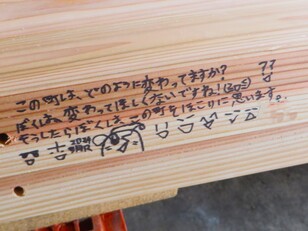 この町は、どのように変わってますか?
ぼくは、変わってほしくないですね!(300%)??
そうしたらぼくは、この町をほこりに思います。